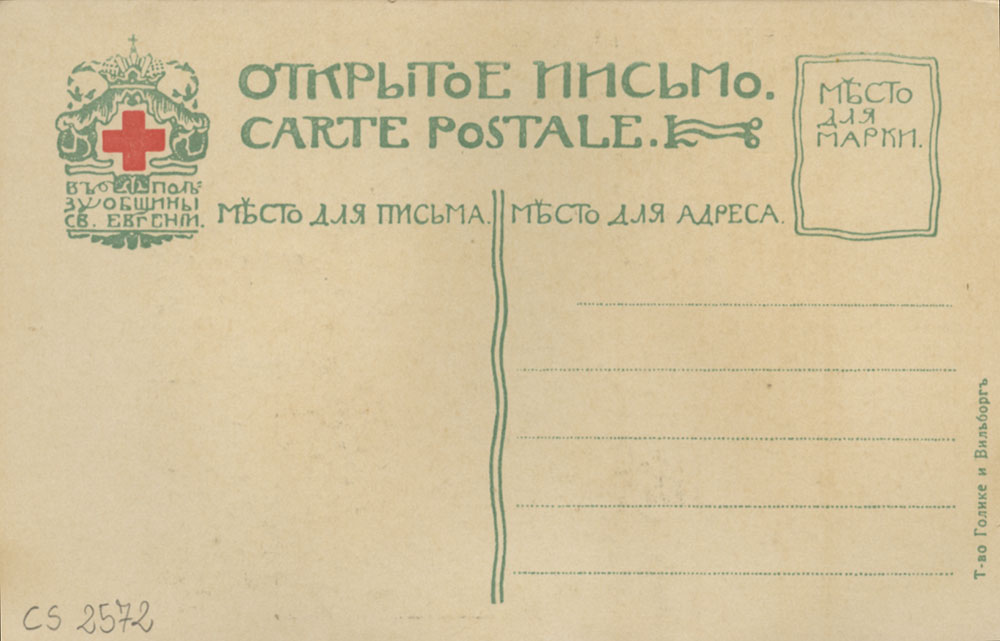 ОТКРЫТОЕ ПИСЬМО.
CARTE POSTALE.
МѢСТО
ДЛЯ
МАРКИ.
ВЪ ПОЛЬ-
ЗУ ОБЩИНЫ
СВ. ЕВГЕНІИ.
МѢСТО ДЛЯ ПИСЬМА.
МѢСТО ДЛЯ АДРЕСА.
Т-во Голике и Вильборгъ
CS 2572